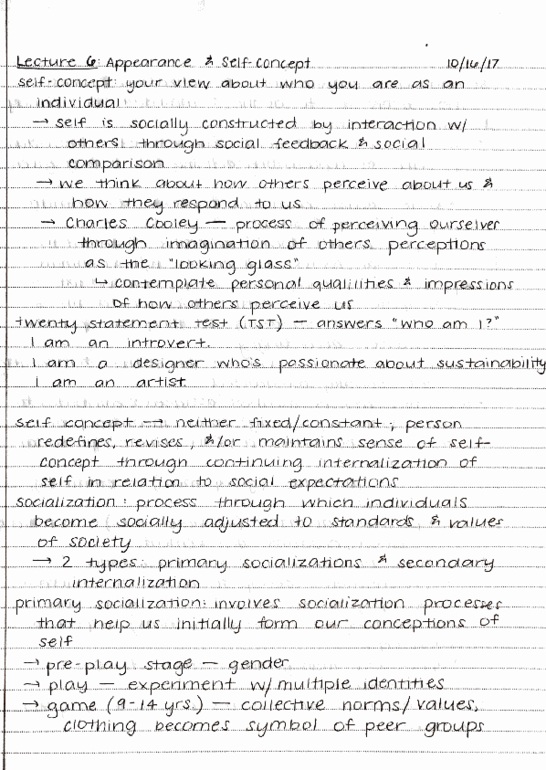 Lecture 6: Appearance & Self-concept 10/16/17
self-concept: your view about who you are as an
individual
→ self is socially constructed by interaction w/
others through social feedback & social
comparison
→ we think about how others perceive about us &
how they respond to us
→ Charles Cooley — process of perceiving ourselves
through imagination of others perceptions
as the "looking glass"
↳ contemplate personal qualities & impressions
of how others perceive us
twenty statement test (TST) — answers "who am I?"
I am an introvert.
I am a designer who's passionate about sustainability
I am an artist
self concept → neither fixed/constant; person
redefines, revises, &/or maintains sense of self-
concept through continuing internalization of
self in relation to social expectations
socialization: process through which individuals
become socially adjusted to standards & values
of society
→ 2 types: primary socializations & secondary
internalization
primary socialization: involves socialization processes
that help us initially form our conceptions of
self
→ pre-play stage — gender
→ play — experiment w/ multiple identities
→ game (9-14 yrs.) — collective norms/values,
clothing becomes symbol of peer groups